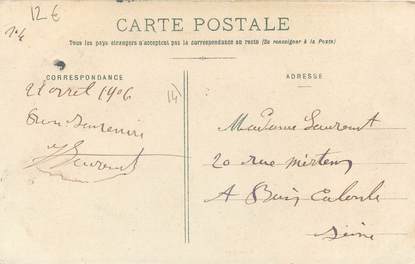 12€
CARTE POSTALE
Tous les pays étrangers n'acceptent pas la correspondance au recto (Se renseigner à la Poste)
CORRESPONDANCE
21 avril 1906
Bon Souvenir
Laurent
14
ADRESSE
Madame Laurent
20 rue Mertens
A Bois Colombe
Seine